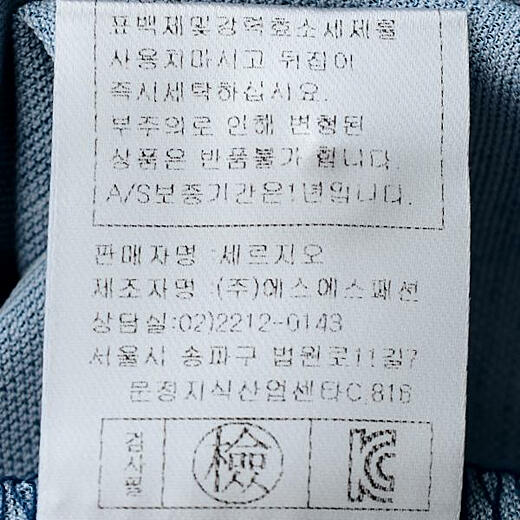 표백제및강력효소세제를
사용치마시고 뒤집어
즉시세탁하십시요.
부주의로 인해 변형된
상품은 반품불가 합니다.
A/S보증기간은1년입니다.
판매자명 :세르지오
제조자명 :(주)에스에스패션
상담실:02)2212-0143
서울시 송파구 법원로11길7
문정지식산업센타C,816
검사필
檢
KC